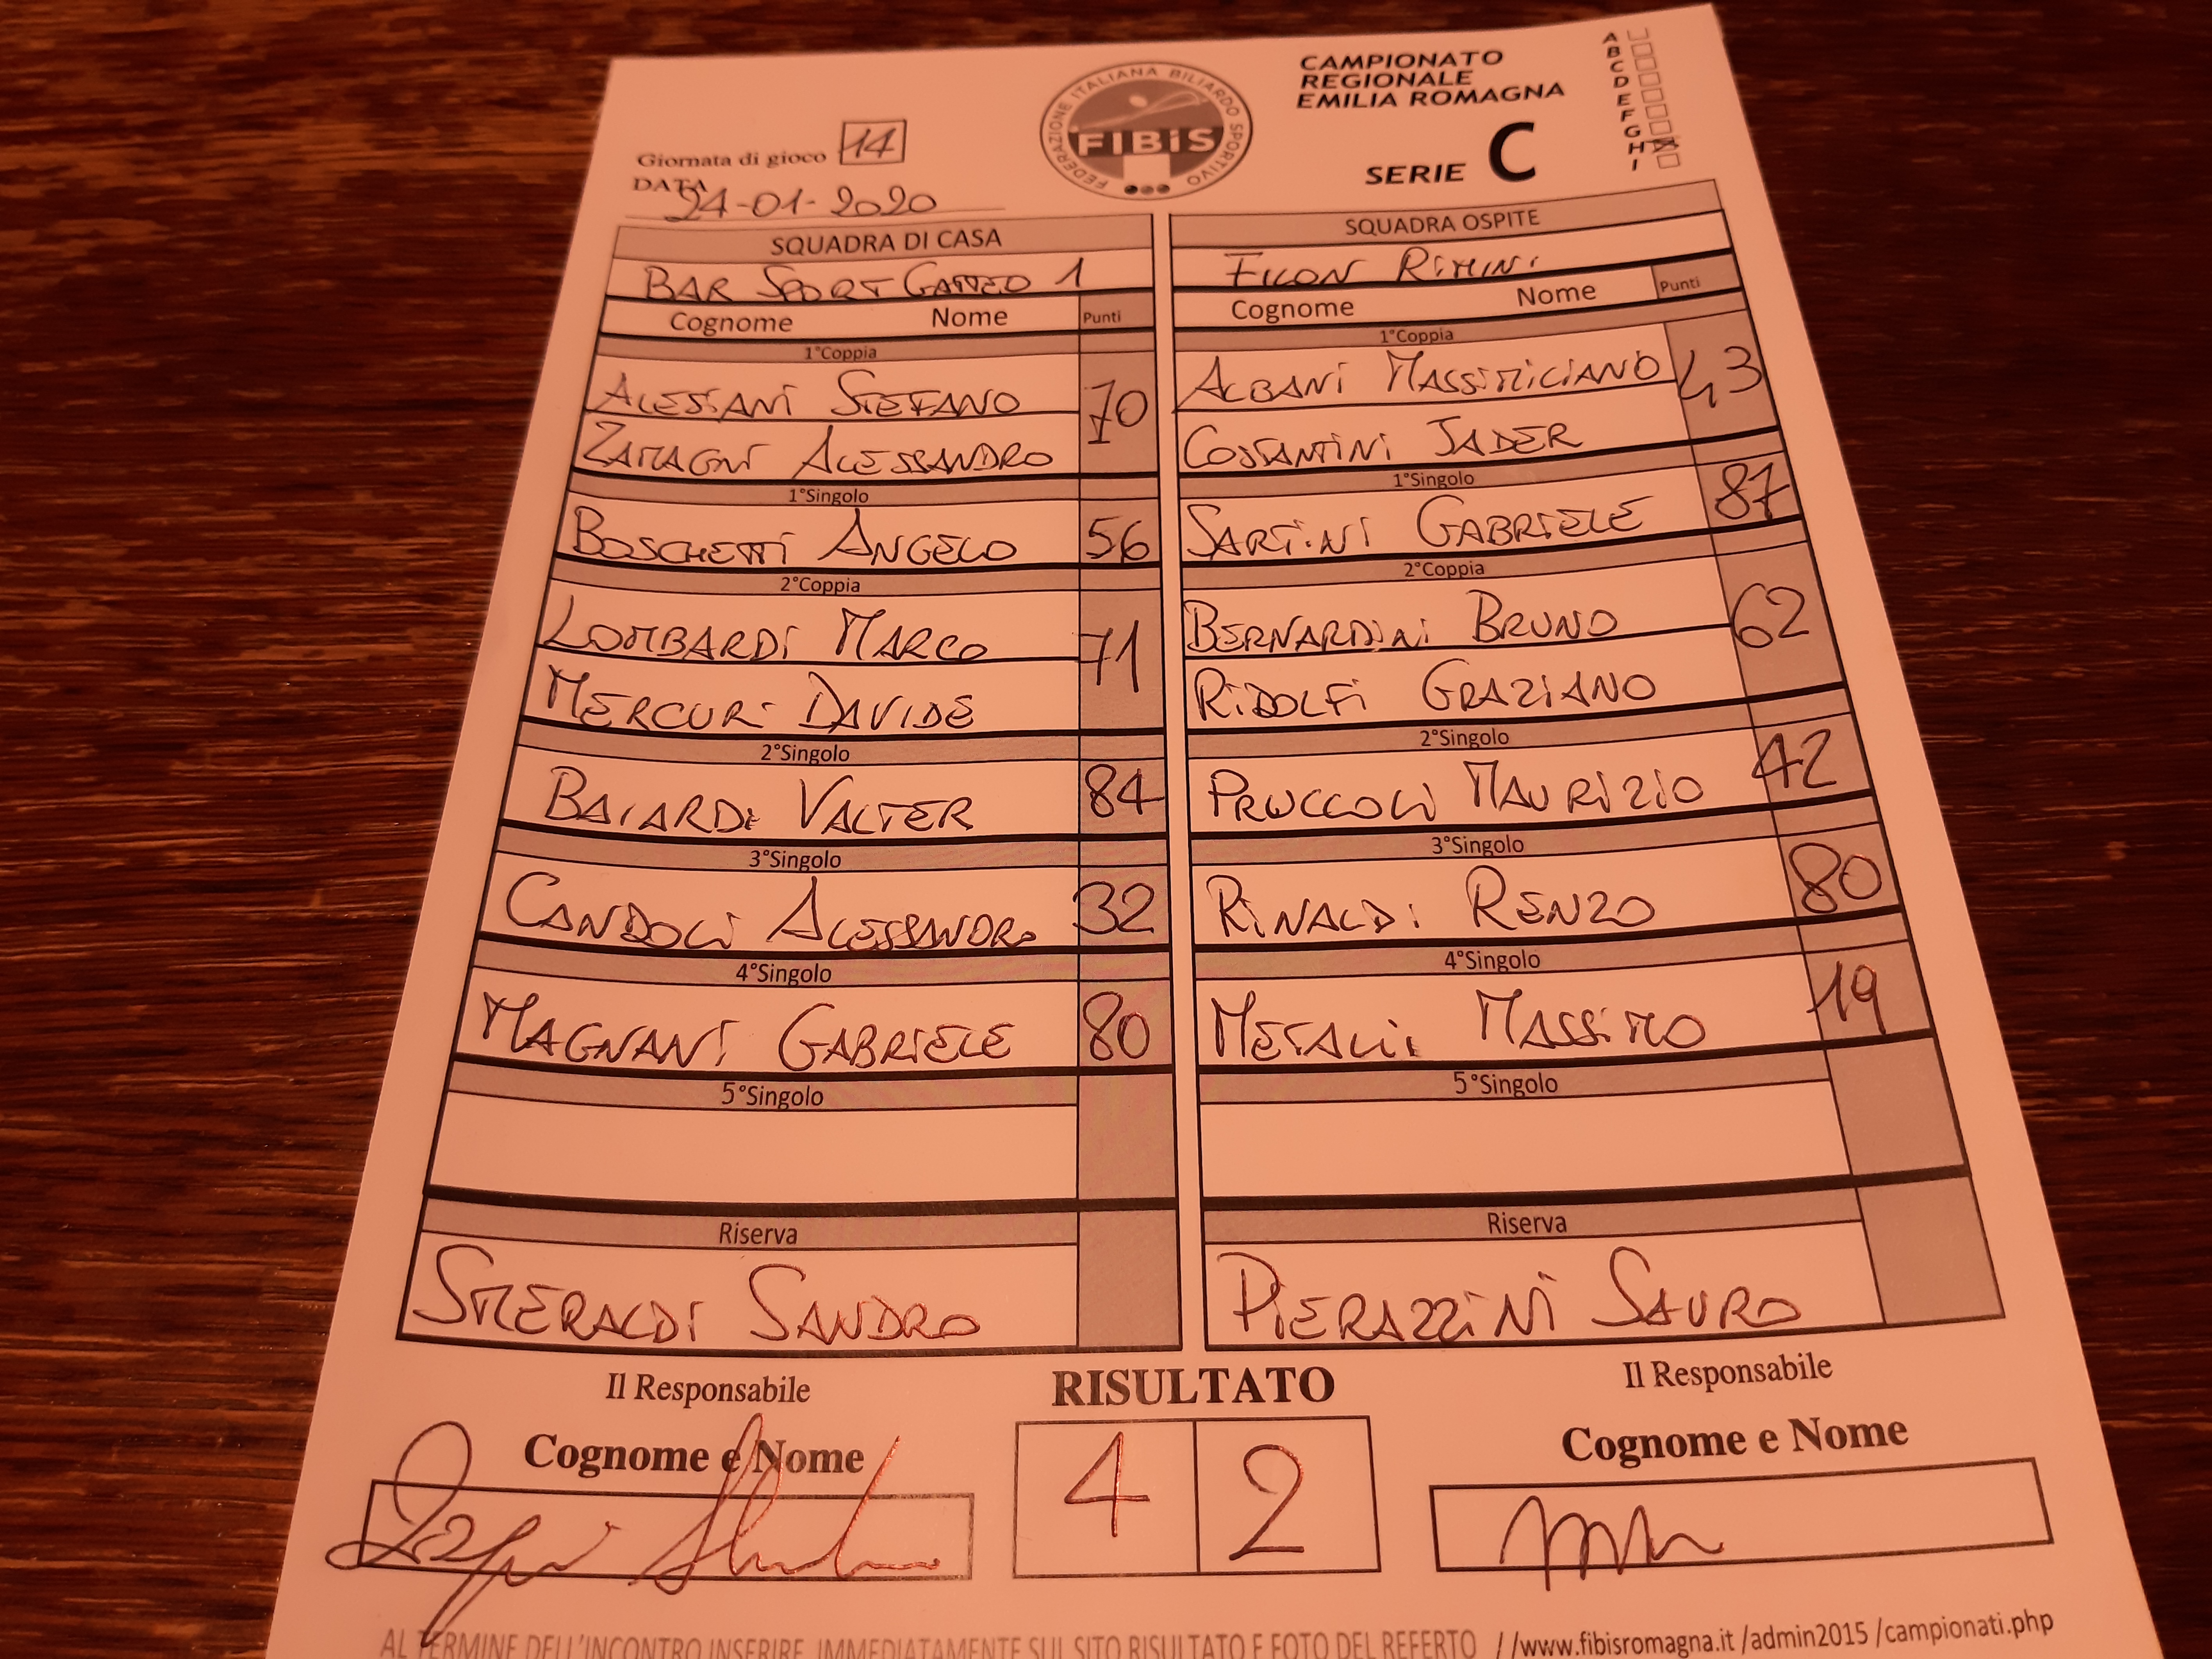 Giornata di gioco 14
DATA 24-01-2020
FEDERAZIONE ITALIANA BILIARDO SPORTIVO
FIBiS
CAMPIONATO
REGIONALE
EMILIA ROMAGNA
SERIE C
A
B
C
D
E
F
G
H
I
SQUADRA DI CASA
BAR SPORT GATTEO 1
Cognome Nome Punti
1°Coppia
ALESSANI STEFANO 70
ZAMAGNI ALESSANDRO
1°Singolo
BOSCHETTI ANGELO 56
2°Coppia
LOMBARDI MARCO 71
MERCURI DAVIDE
2°Singolo
BAIARDI VALTER 84
3°Singolo
CANDOLI ALESSANDRO 32
4°Singolo
MAGNANI GABRIELE 80
5°Singolo
Riserva
SMERALDI SANDRO
SQUADRA OSPITE
RIMINI
Cognome Nome Punti
1°Coppia
ALBANI MASSIMILIANO 43
COSTANTINI JADER
1°Singolo
SARTINI GABRIELE 87
2°Coppia
BERNARDINI BRUNO 62
RIDOLFI GRAZIANO
2°Singolo
PRUCCOLI MAURIZIO 42
3°Singolo
RINALDI RENZO 80
4°Singolo
METALLI MASSIMO 19
5°Singolo
Riserva
PIERAZZINI SAURO
Il Responsabile
Cognome e Nome
RISULTATO
4 2
Il Responsabile
Cognome e Nome
AL TERMINE DELL'INCONTRO INSERIRE IMMEDIATAMENTE SUL SITO RISULTATO E FOTO DEL REFERTO //www.fibisromagna.it /admin2015 /campionati.php